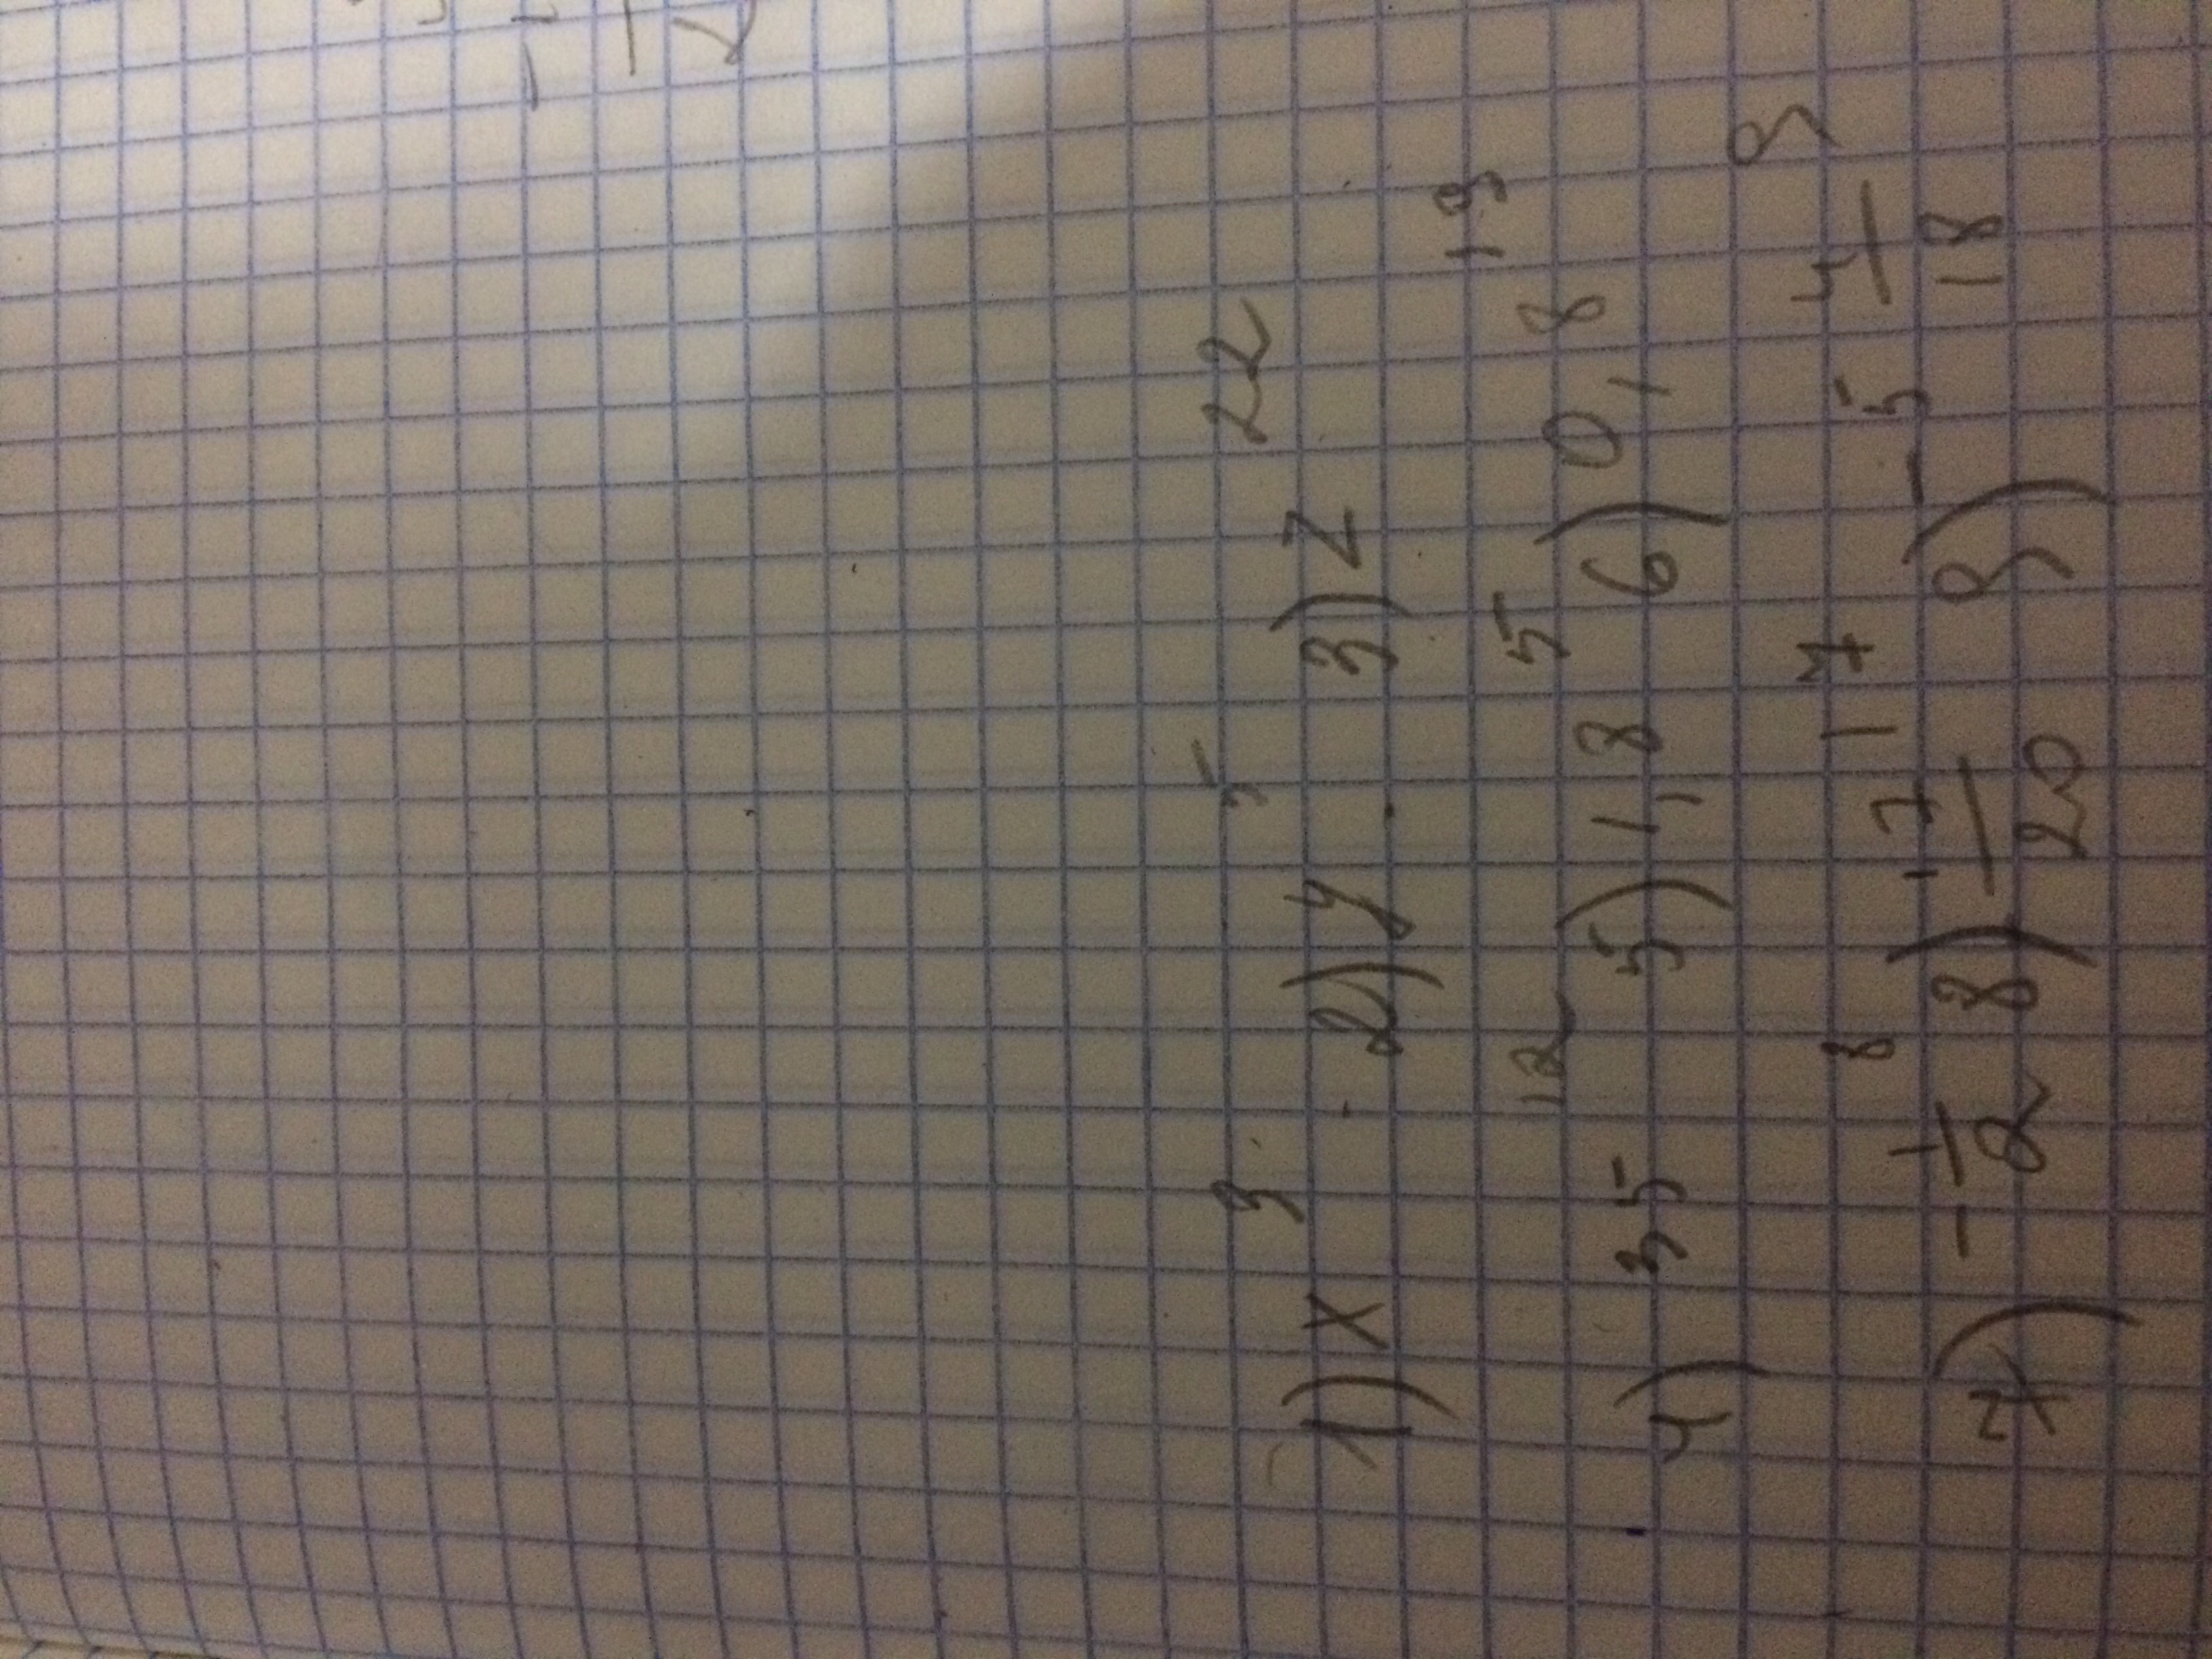 1) x³ 2) y⁵ 3) z²²
4) 35¹² 5) 1,8⁵ 6) 0,8¹⁹
7) -1/2⁸ 8) 17/20¹⁷ 9) -5 4/18⁹